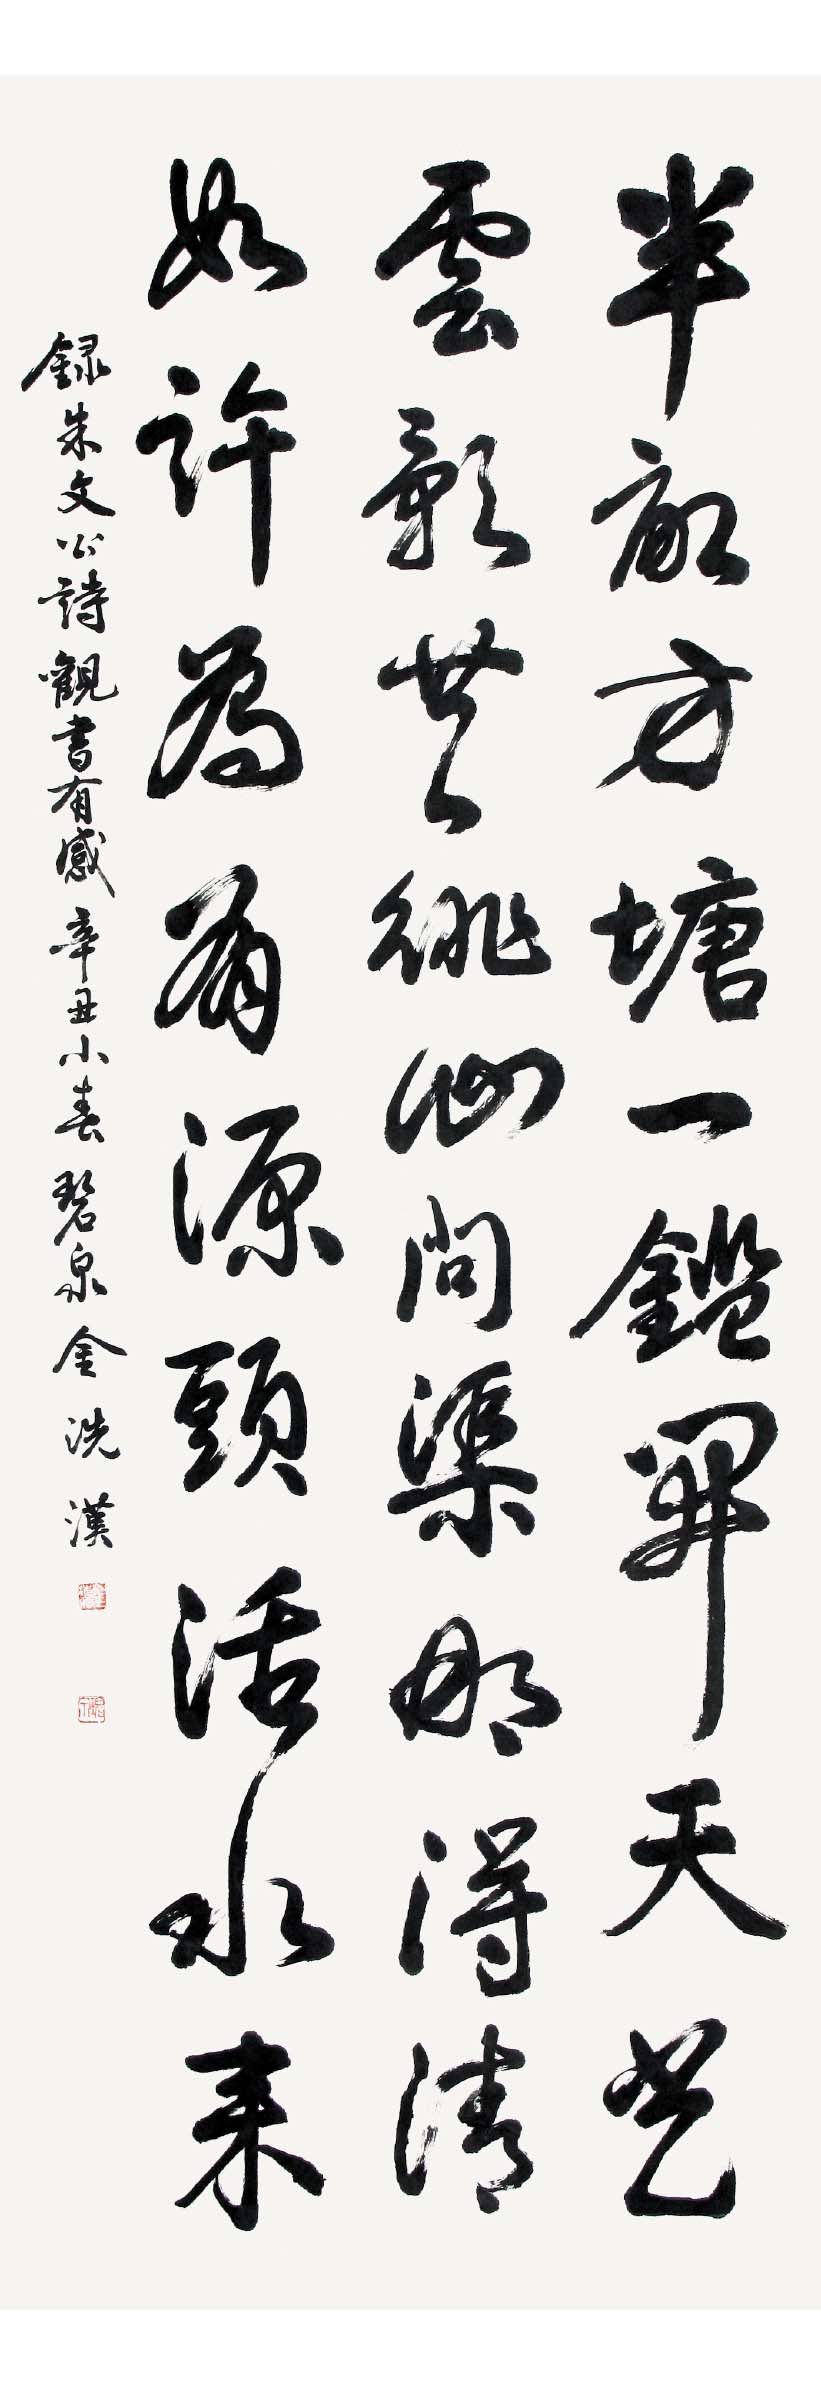 半畝方塘一鑑開天光
雲影共徘徊問渠那得清
如許為有源頭活水来
録朱文公詩觀書有感辛丑小春碧泉金洗漢